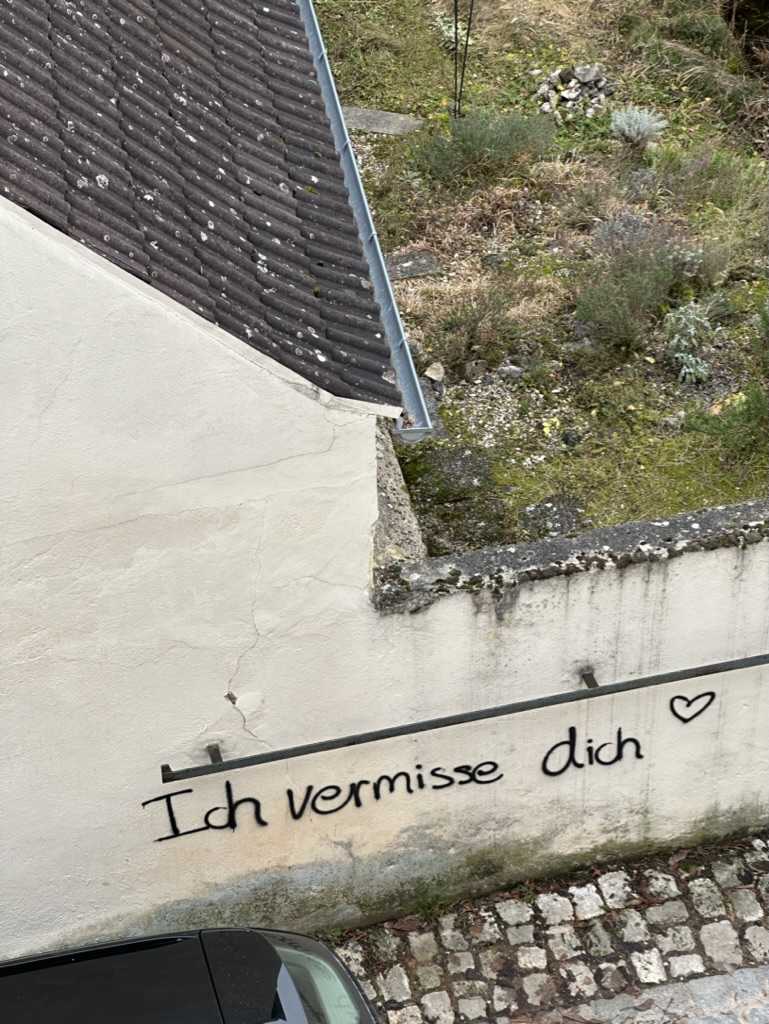 Ich vermisse dich ♡